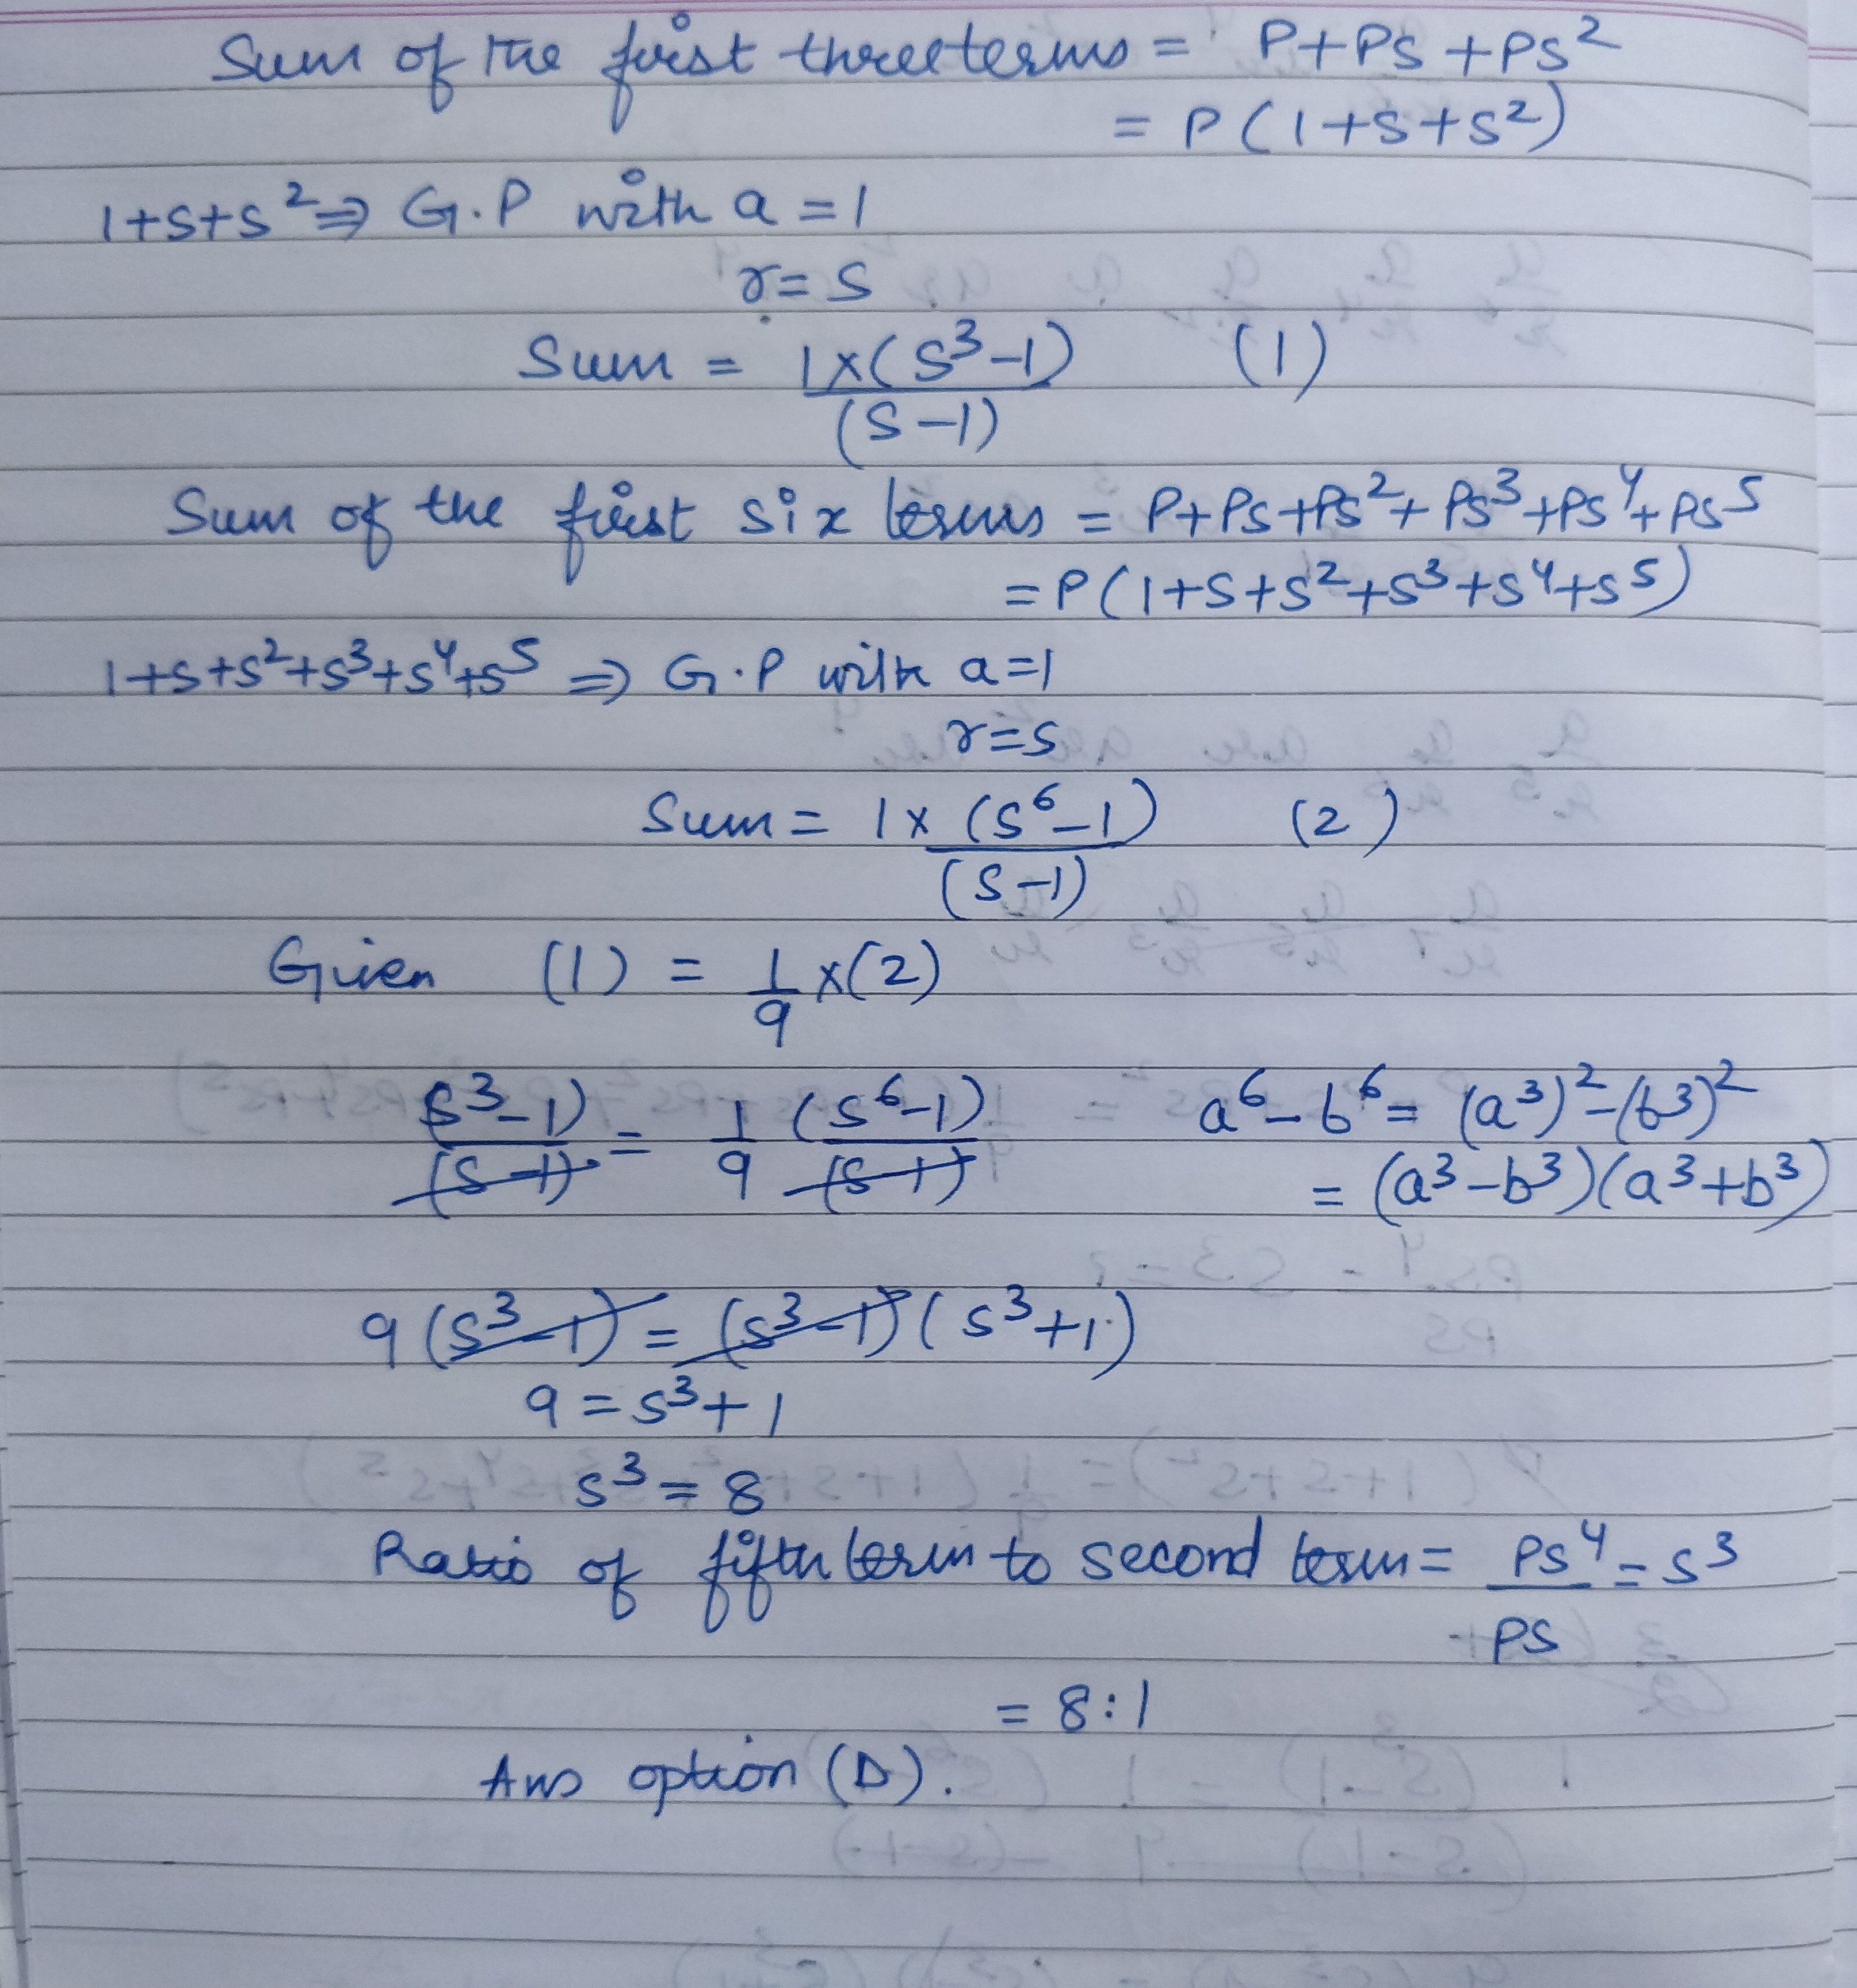 Sum of the first three terms = P+PS+PS²
= P(1+S+S²)
1+S+S² ⇒ G.P with a=1
r=S
Sum = 1×(S³-1)/(S-1) (1)
Sum of the first six terms = P+PS+PS²+PS³+PS⁴+PS⁵
=P(1+S+S²+S³+S⁴+S⁵)
1+S+S²+S³+S⁴+S⁵ ⇒ G.P with a=1
r=S
Sum = 1×(S⁶-1)/(S-1) (2)
Given (1) = 1/9 ×(2)
(S³-1)/(S-1) = 1/9 (S⁶-1)/(S-1) a⁶-b⁶= (a³)²-(b³)²
= (a³-b³)(a³+b³)
9(S³-1) = (S³-1)(S³+1)
9 = S³+1
S³ = 8
Ratio of fifth term to second term = PS⁴/PS = S³
= 8:1
Ans option (D).